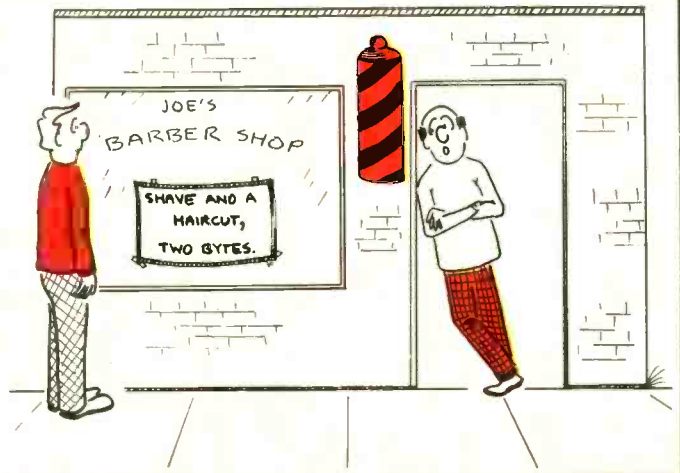 JOE'S
BARBER SHOP
SHAVE AND A
HAIRCUT,
TWO BYTES.